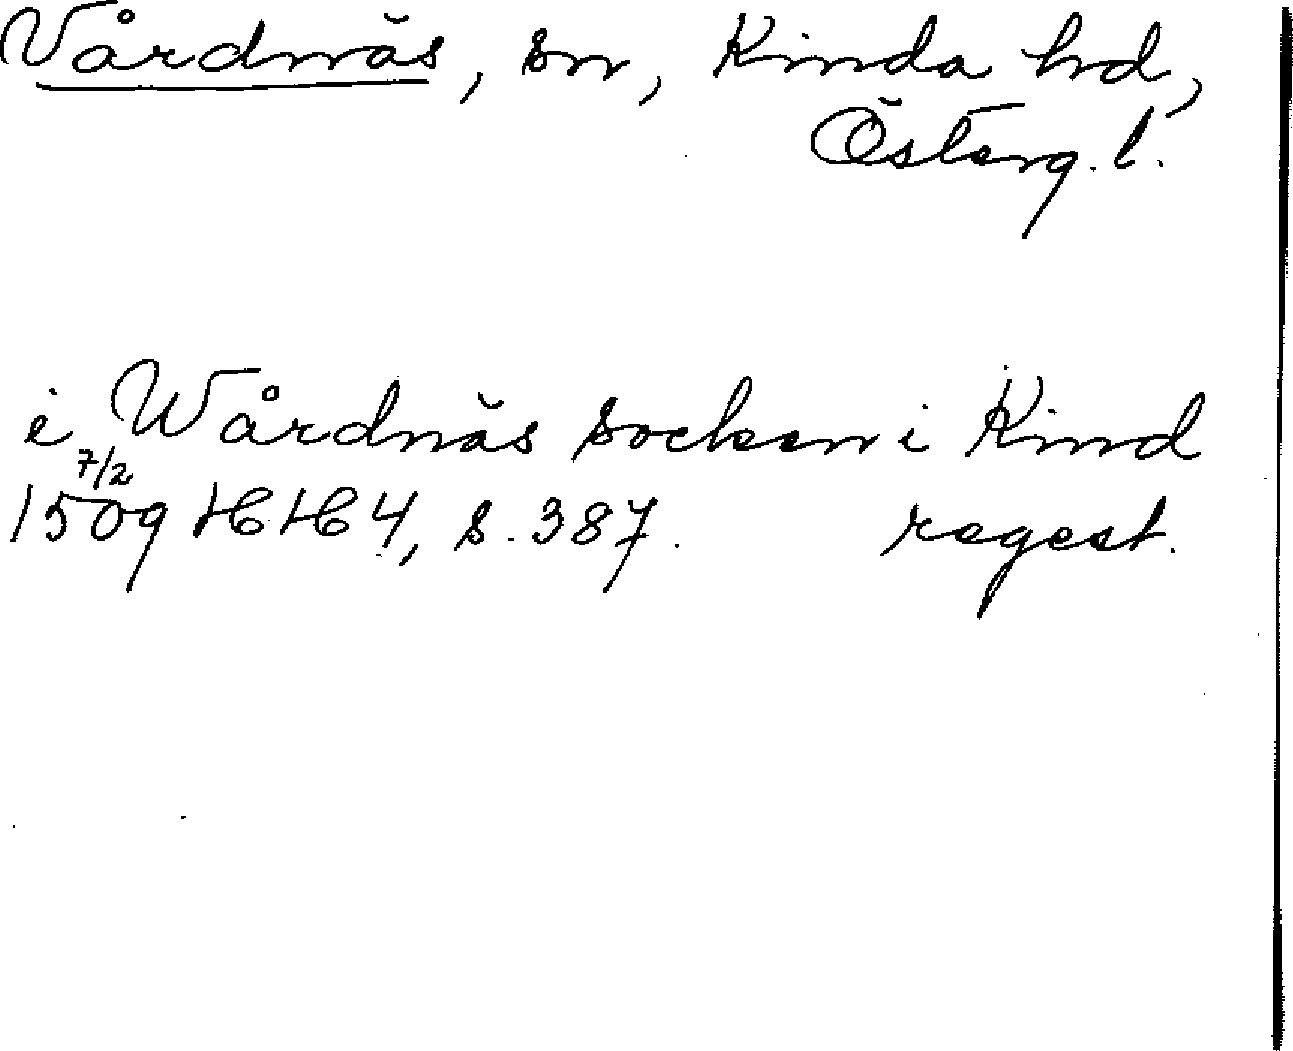 Vårdnäs, sn, Kinda hd,
Österg. l.
i Wårdnäs socken i Kind
7/2
1509 HH 4, s. 387. regest.